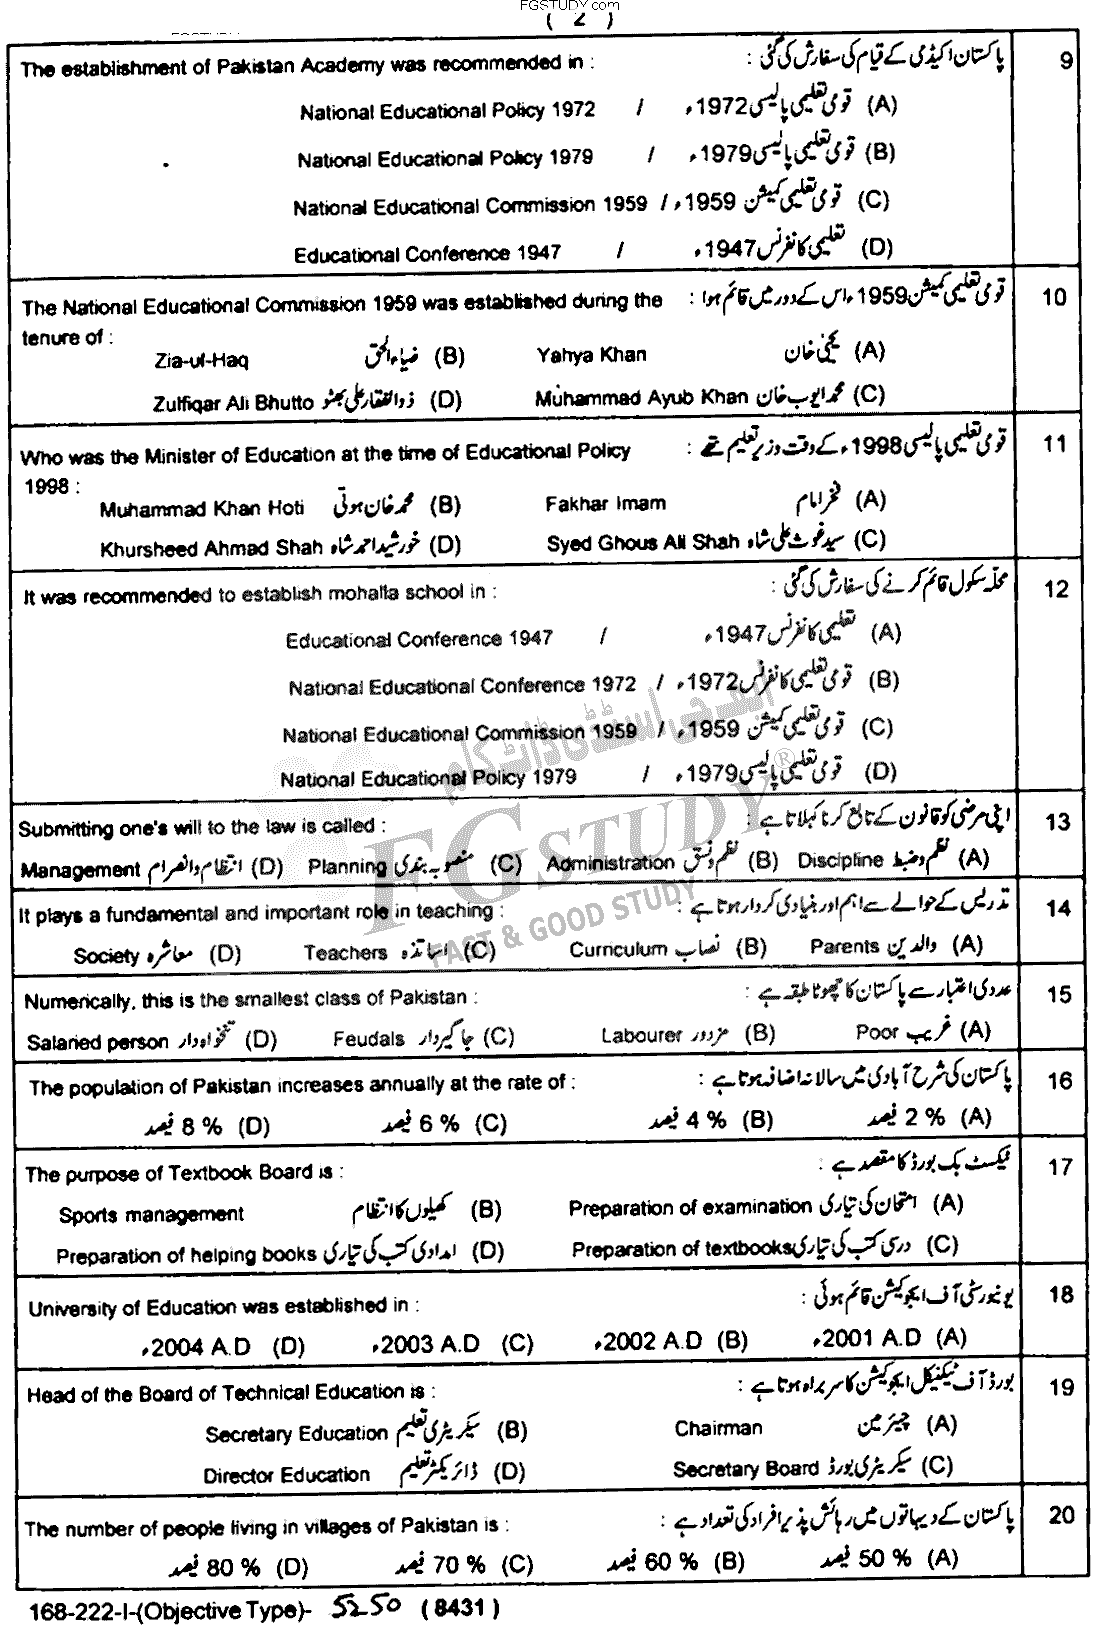 FGSTUDY.com
( 2 )
9 پاکستان اکیڈمی کے قیام کی سفارش کی گئی : The establishment of Pakistan Academy was recommended in :
(A) قومی تعلیمی پالیسی 1972ء / National Educational Policy 1972
(B) قومی تعلیمی پالیسی 1979ء / National Educational Policy 1979
(C) قومی تعلیمی کمیشن 1959ء / National Educational Commission 1959
(D) تعلیمی کانفرنس 1947ء / Educational Conference 1947
10 قومی تعلیمی کمیشن 1959ء اس کے دور میں قائم ہوا : The National Educational Commission 1959 was established during the
tenure of :
(A) یحییٰ خان Yahya Khan (B) ضیاء الحق Zia-uf-Haq
(C) محمد ایوب خان Muhammad Ayub Khan (D) ذوالفقار علی بھٹو Zulfiqar Ali Bhutto
11 قومی تعلیمی پالیسی 1998ء کے وقت وزیر تعلیم تھے : Who was the Minister of Education at the time of Educational Policy
1998 :
(A) فخر امام Fakhar Imam (B) محمد خان ہوتی Muhammad Khan Hoti
(C) سید غوث علی شاہ Syed Ghous Ali Shah (D) خورشید احمد شاہ Khursheed Ahmad Shah
12 محلہ سکول قائم کرنے کی سفارش کی گئی : It was recommended to establish mohalla school in :
(A) تعلیمی کانفرنس 1947ء / Educational Conference 1947
(B) قومی تعلیمی کانفرنس 1972ء / National Educational Conference 1972
(C) قومی تعلیمی کمیشن 1959ء / National Educational Commission 1959
(D) قومی تعلیمی پالیسی 1979ء / National Educational Policy 1979
13 اپنی مرضی کو قانون کے تابع کرنا کہلاتا ہے : Submitting one's will to the law is called :
(A) نظم و ضبط Discipline (B) نظم و نسق Administration (C) منصوبہ بندی Planning (D) انتظام و انصرام Management
14 تدریس کے حوالے سے اہم اور بنیادی کردار ہوتا ہے : It plays a fundamental and important role in teaching :
(A) والدین Parents (B) نصاب Curriculum (C) اساتذہ Teachers (D) معاشرہ Society
15 عددی اعتبار سے پاکستان کا چھوٹا طبقہ ہے : Numerically, this is the smallest class of Pakistan :
(A) غریب Poor (B) مزدور Labourer (C) جاگیردار Feudals (D) تنخواہ دار Salaried person
16 پاکستان کی شرح آبادی میں سالانہ اضافہ ہوتا ہے : The population of Pakistan increases annually at the rate of :
(A) 2 % فیصد (B) 4 % فیصد (C) 6 % فیصد (D) 8 % فیصد
17 ٹیکسٹ بک بورڈ کا مقصد ہے : The purpose of Textbook Board is :
(A) امتحان کی تیاری Preparation of examination (B) کھیلوں کا انتظام Sports management
(C) درسی کتب کی تیاری Preparation of textbooks (D) امدادی کتب کی تیاری Preparation of helping books
18 یونیورسٹی آف ایجوکیشن قائم ہوئی : University of Education was established in :
(A) 2001 A.D ء (B) 2002 A.D ء (C) 2003 A.D ء (D) 2004 A.D ء
19 بورڈ آف ٹیکنیکل ایجوکیشن کا سربراہ ہوتا ہے : Head of the Board of Technical Education is :
(A) چیئرمین Chairman (B) سیکریٹری تعلیم Secretary Education
(C) سیکریٹری بورڈ Secretary Board (D) ڈائریکٹر تعلیم Director Education
20 پاکستان کے دیہاتوں میں رہائش پذیر افراد کی تعداد ہے : The number of people living in villages of Pakistan is :
(A) 50 % فیصد (B) 60 % فیصد (C) 70 % فیصد (D) 80 % فیصد
168-222-I-(Objective Type)- 5250 (8431)
ایف جی اسٹڈی ڈاٹ کام
FG STUDY ®
FAST & GOOD STUDY